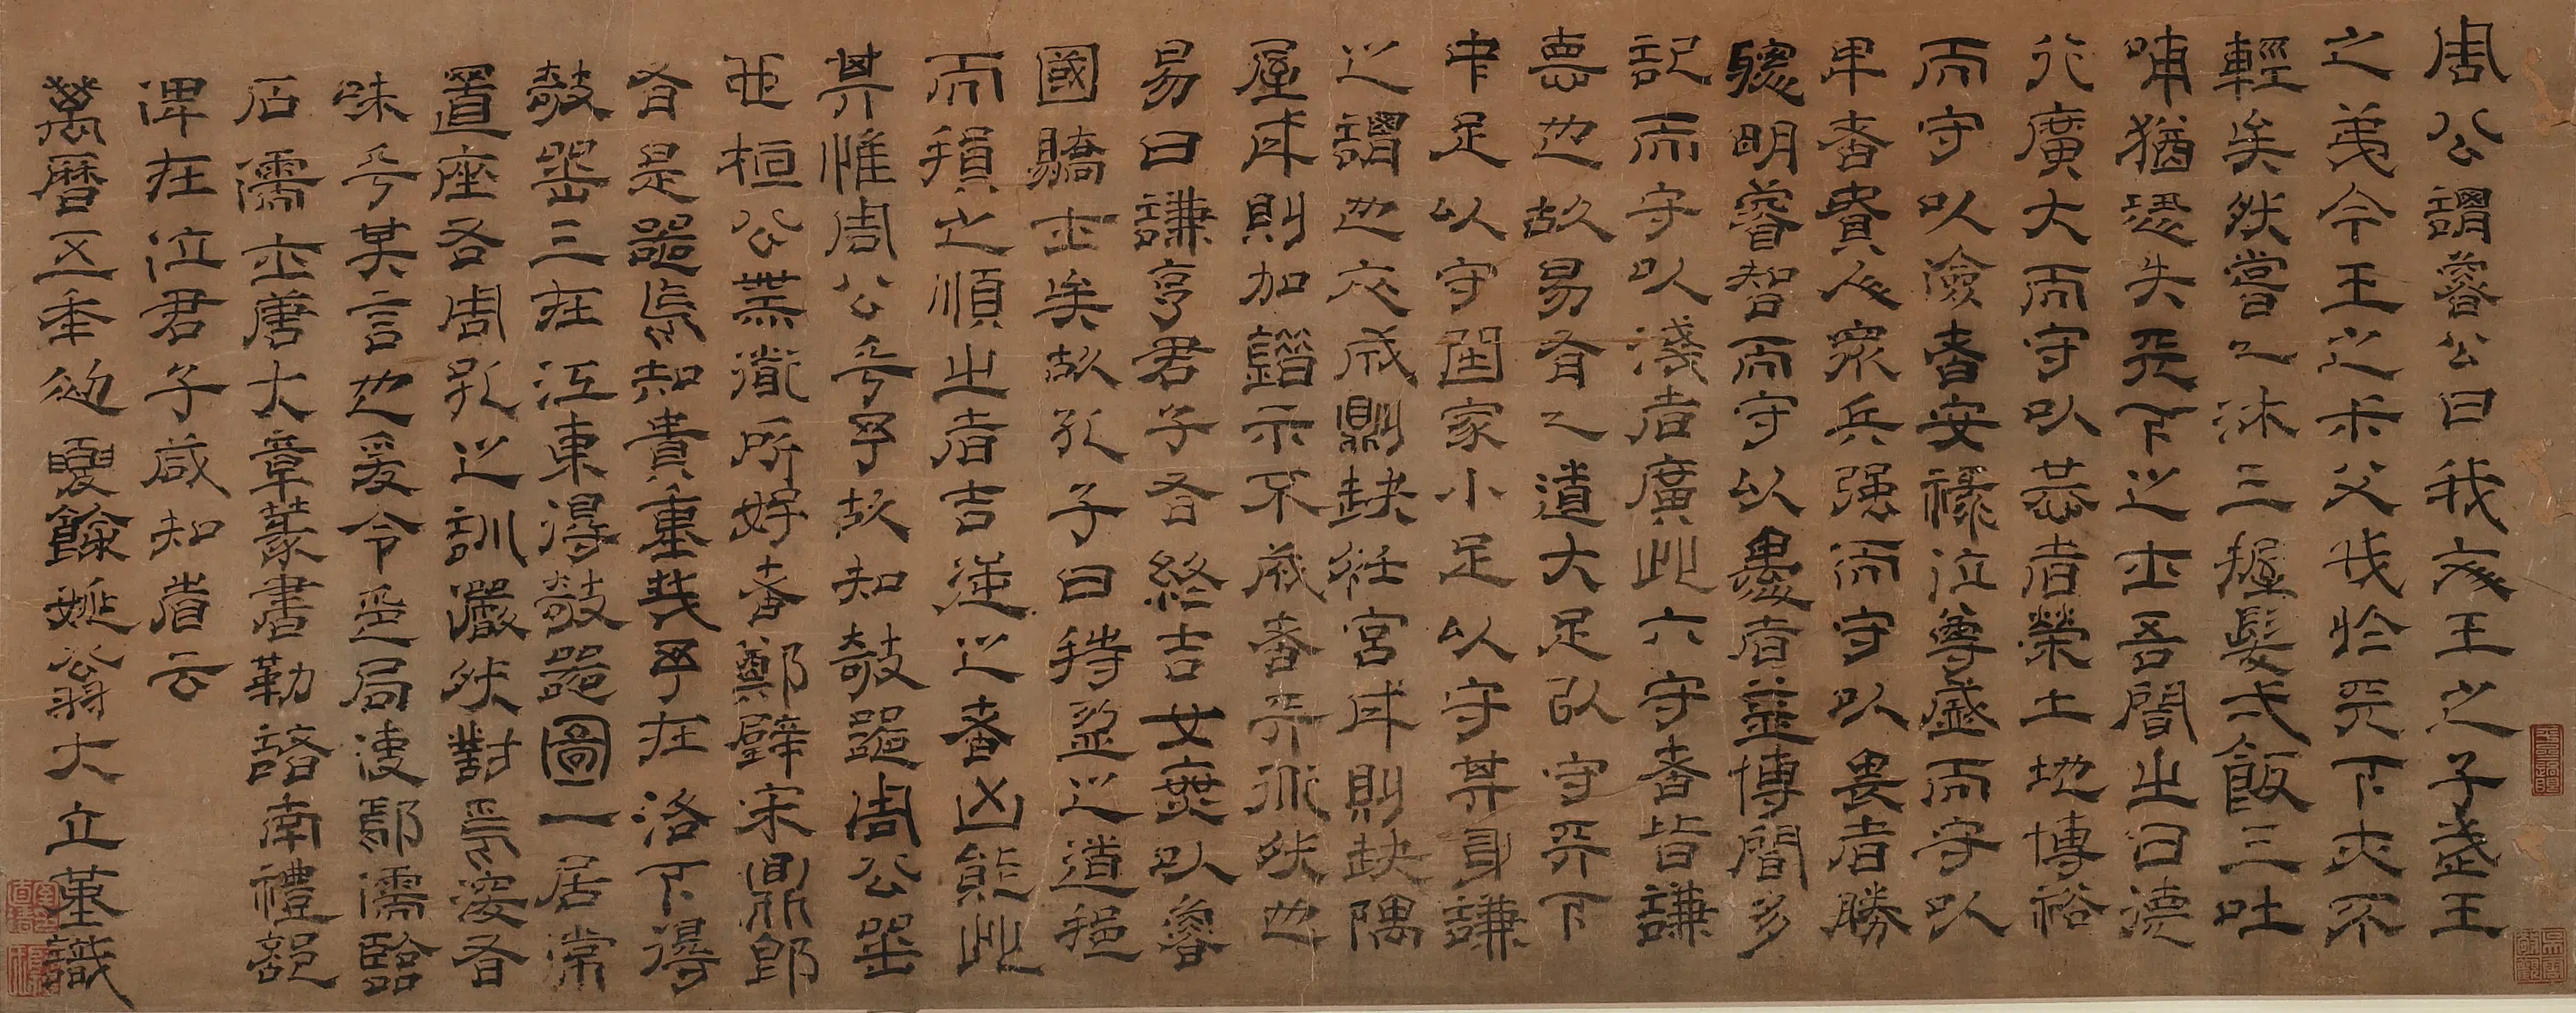 周公謂魯公曰我文王之子武王
之弟今王之叔父我於天下亦不
輕矣然嘗一沐三握髮弌飯三吐
哺猶恐失天下之士吾聞之曰德
行廣大而守以恭者榮土地博裕
而守以儉者安祿位尊盛而守以
卑者貴人衆兵强而守以畏者勝
聰明睿智而守以愚者益博聞多
記而守以淺者廣此六守者皆謙
悳也故易有一道大足以守天下
中足以守國家小足以守其身謙
之謂也衣成則缺衽宮成則缺隅
屋成則加錯示不成者天道然也
易曰謙亨君子有終吉女無以魯
國驕士矣故孔子曰持盈之道挹
而損之順之者吉逆之者凶能此
其惟周公乎予故知欹器周公器
也桓公無道所好者鄭璧宋鼎即
有是器焉知貴重哉予在洛下得
欹器三在江東得欹器圖一居常
置座右周孔之訓儼然對焉深有
味乎其言也爰令匠局使鄢濡臨
石儒士唐大章篆書勒諸南禮部
俾在位君子咸知省云
萬曆五年初夏餘姚翁大立堇識